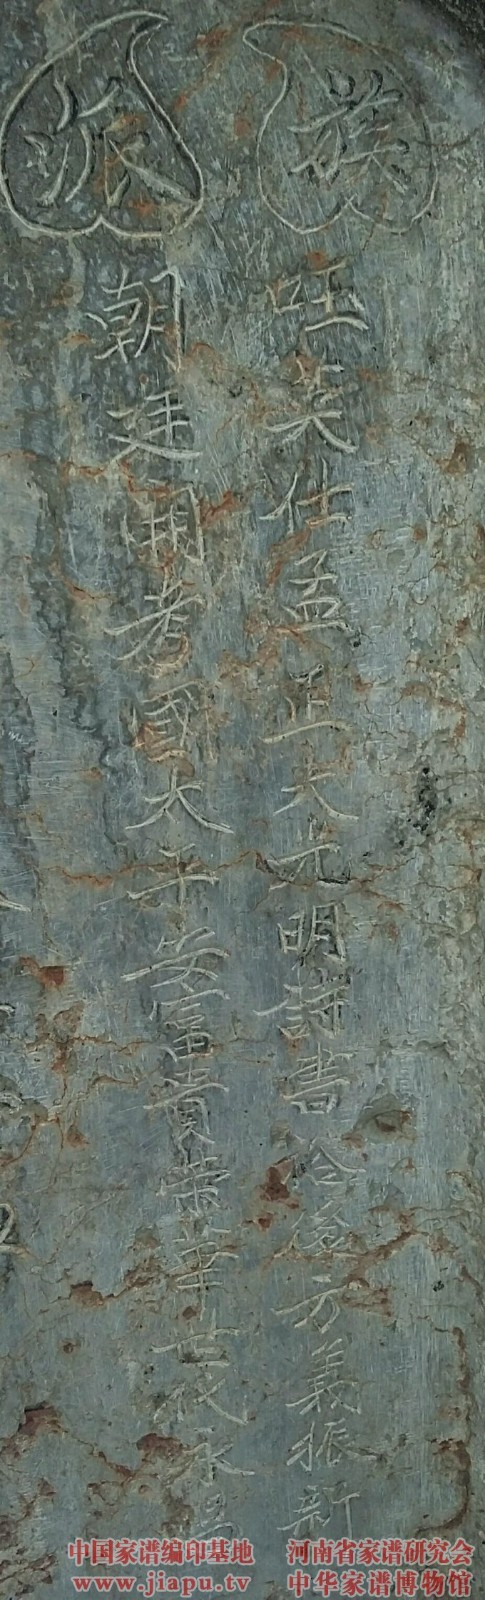 族派
旺英仕孟正大光明詩書裕後方義振新
朝廷開考國太平安富貴榮華世代永昌
中国家谱编印基地 河南省家谱研究会
www.jiapu.tv 中华家谱博物馆